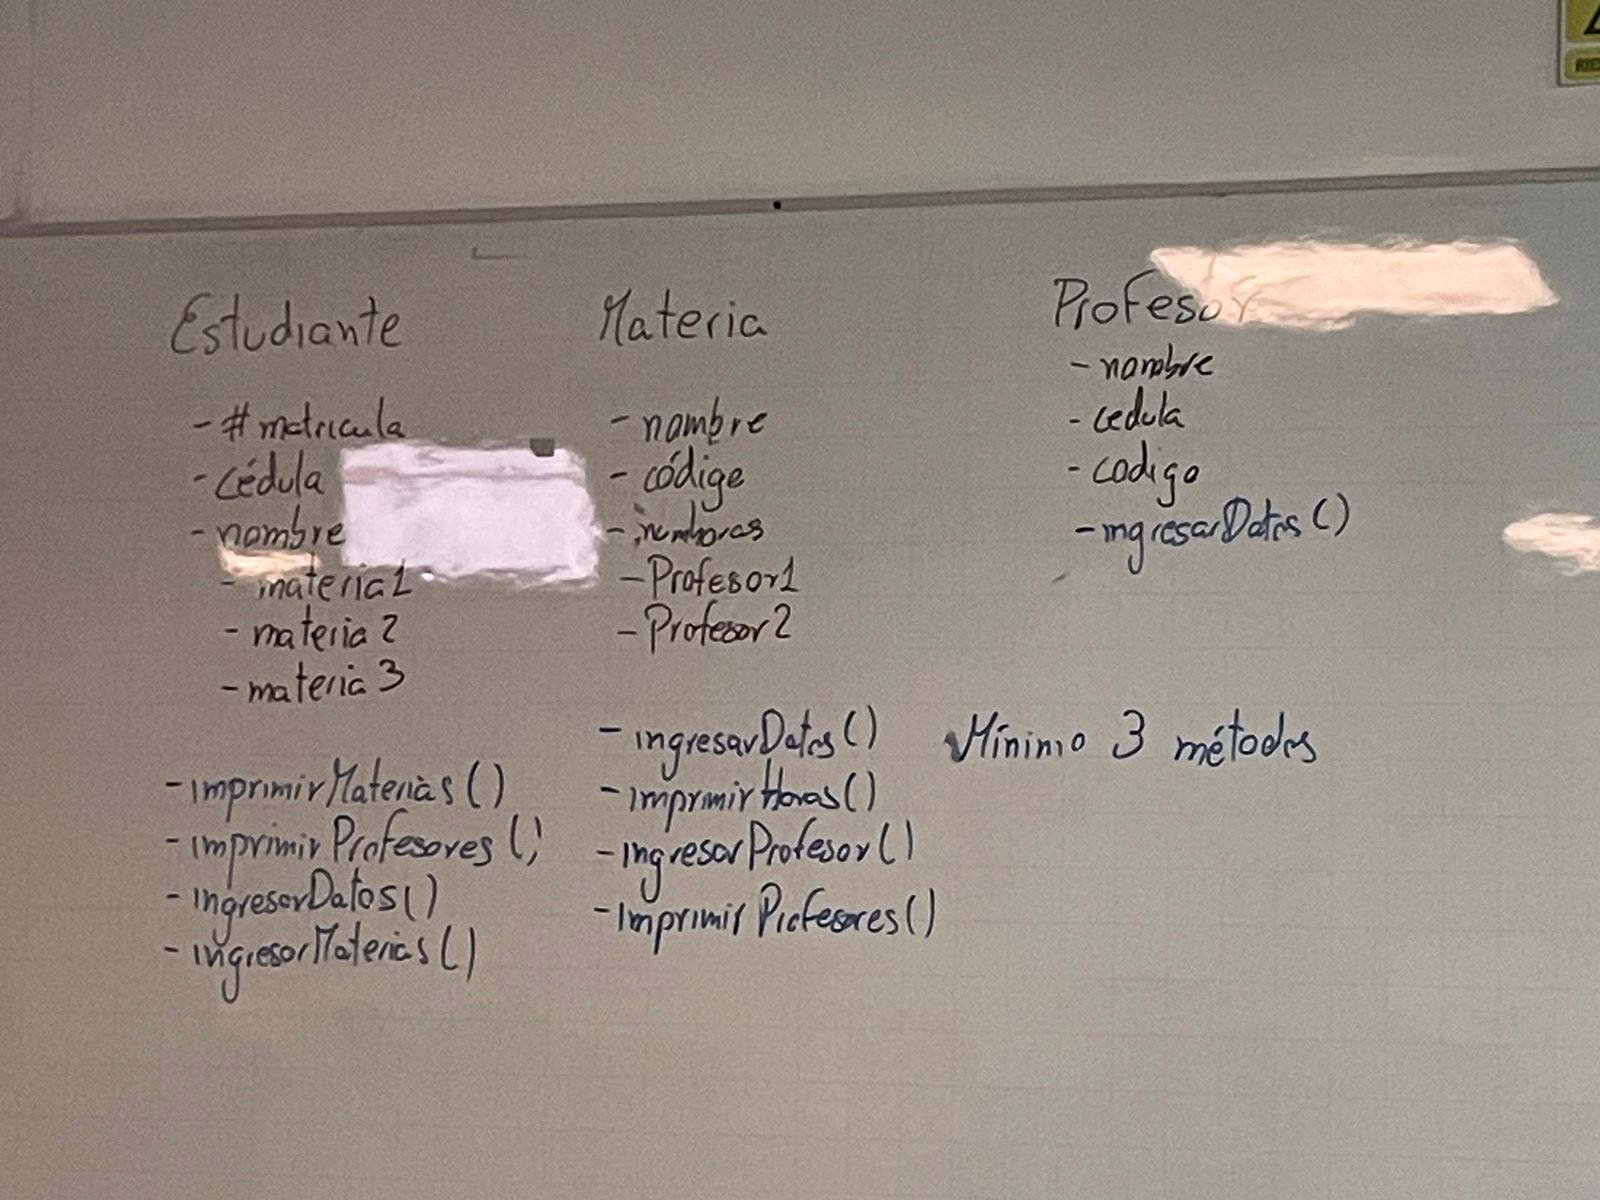 Estudiante
- # matricula
- cédula
- nombre
- materia1
- materia 2
- materia 3
- imprimirMaterias()
- imprimirProfesores()
- ingresarDatos()
- ingresarMaterias()
Materia
- nombre
- código
- numhoras
- Profesor1
- Profesor2
- ingresarDatos()
- imprimirHoras()
- ingresarProfesor()
- imprimirProfesores()
Profesor
- nombre
- cedula
- codigo
- ingresarDatos()
Mínimo 3 métodos